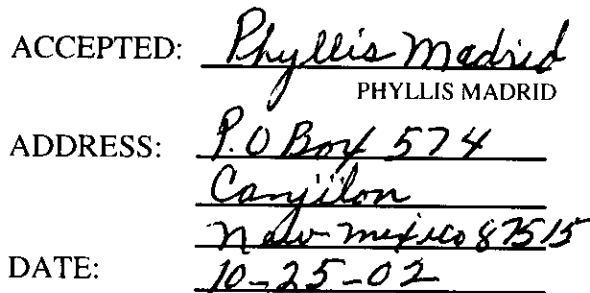 ACCEPTED: Phyllis Madrid
PHYLLIS MADRID
ADDRESS: P.O Box 574
Canjilon
New Mexico 87515
DATE: 10-25-02